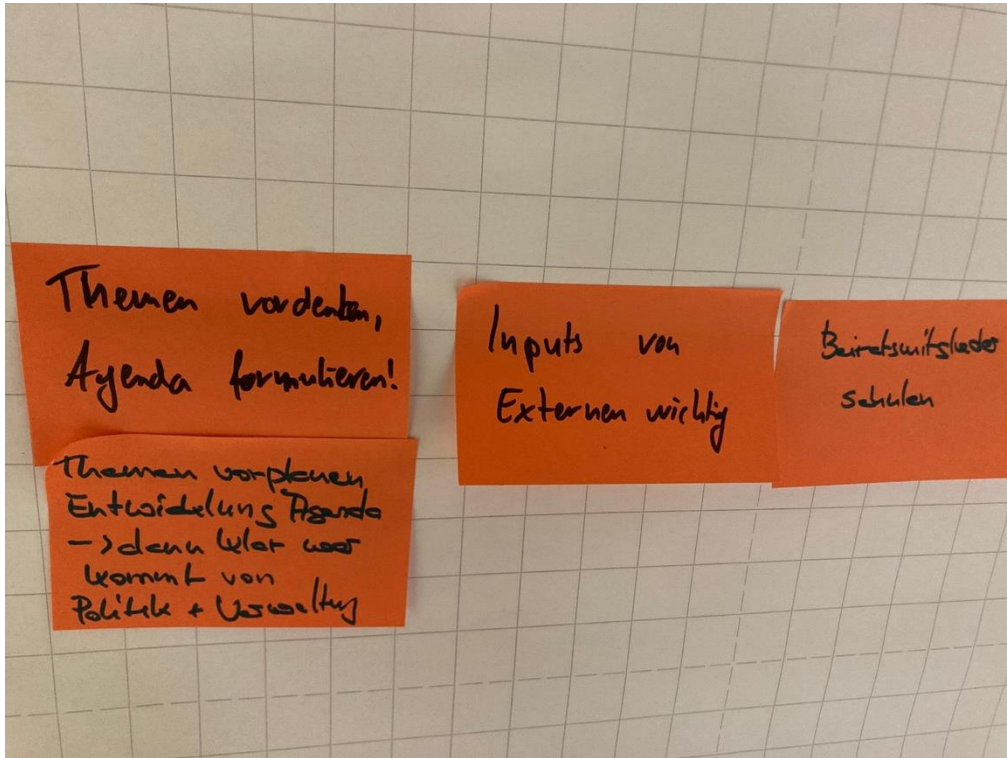 Themen vordenken,
Agenda formulieren!
Themen vorplanen
Entwicklung Agenda
-> dann klar wer
kommt von
Politik + Verwaltung
Inputs von
Externen wichtig
Beiratsmitglieder
schulen